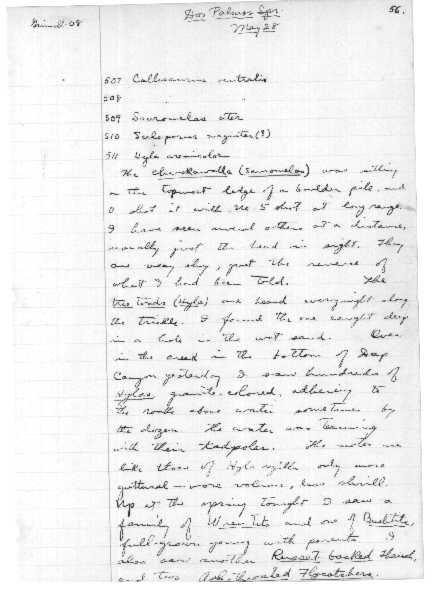 Grinnell-08
Dos Palmos Spr.
56.
May 28
507 Callisaurus ventralis
508
509 Sauromalus ater
510 Sceloporus magister (?)
511 Hyla arenicolor
The chuckawalla (Sauromalus) was sitting
on the topmost ledge of a boulder pile, and
I shot it with No. 5 shot at long range.
I have seen several others at a distance,
usually just the head in sight. They
are very shy, just the reverse of
what I had been told. The
tree toads (Hyla) are heard every night along
the trickle. I found the one caught deep
in a hole in the wet sand. Over
in the creek in the bottom of Deep
Canyon yesterday I saw hundreds of
Hylas granite-colored, adhering to
the rocks above water sometimes by
the dozen. The water was teeming
with their tadpoles. The notes are
like those of Hyla regilla only more
guttural - more volume, less shrill.
Up at the spring tonight I saw a
family of Wren Tits and one of Bushtits,
full-grown young with parents. I
also saw another Russet-backed Thrush,
and two Ash-throated Flycatchers.